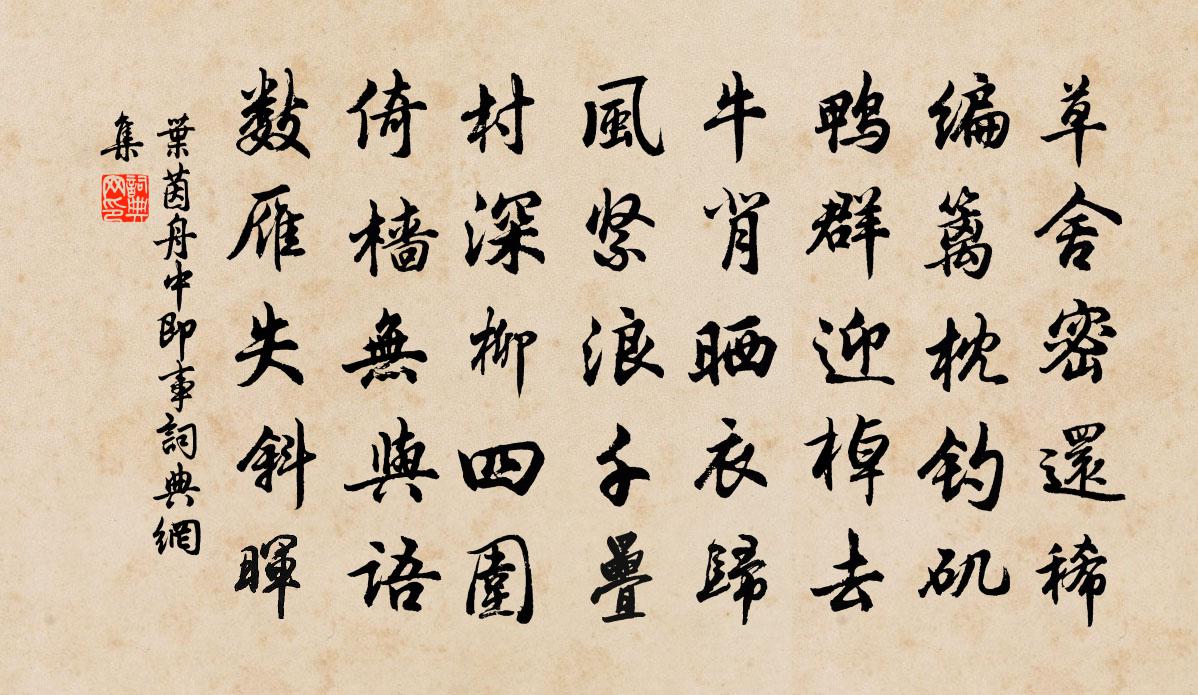 草舍密還稀
編籬枕釣矶
鴨群迎棹去
牛背晒衣歸
風緊浪千疊
村深柳四圍
倚檣無與語
數雁失斜暉
葉茵舟中即事詞典網
集
詞典
网印